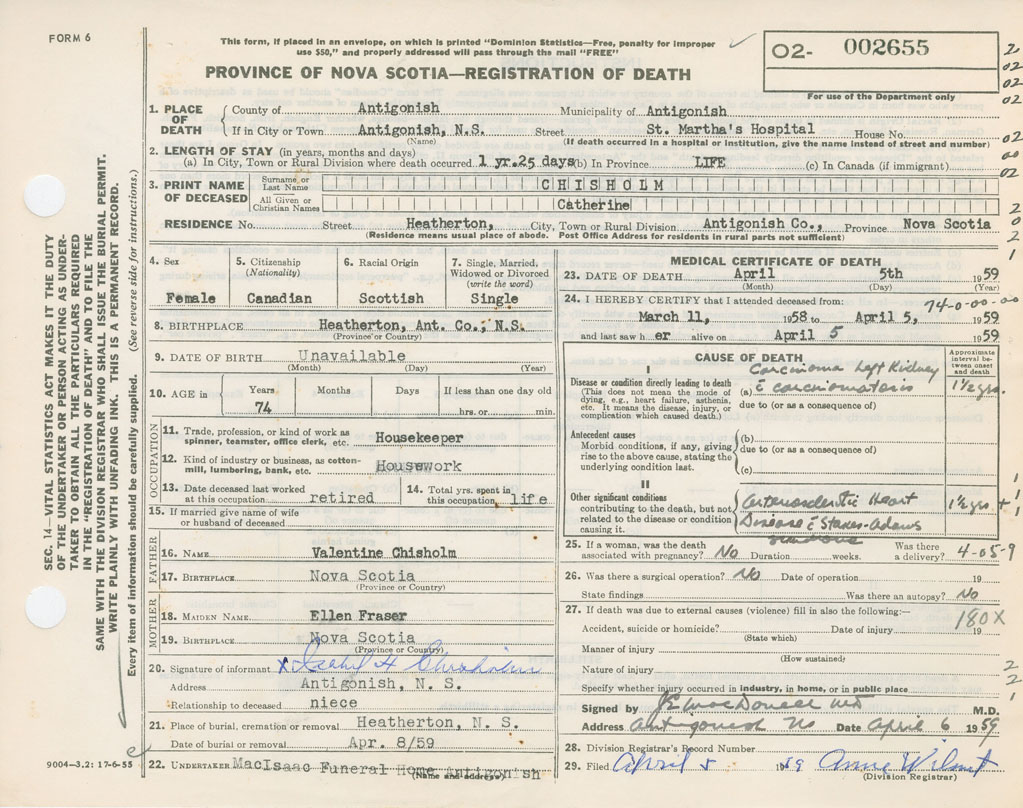 FORM 6
This form, if placed in an envelope, on which is printed "Dominion Statistics—Free, penalty for improper
use $50," and properly addressed will pass through the mail "FREE"
PROVINCE OF NOVA SCOTIA—REGISTRATION OF DEATH
02- 002655
For use of the Department only
1. PLACE OF DEATH
County of Antigonish Municipality of Antigonish
If in City or Town Antigonish, N.S. Street St. Martha's Hospital House No.
(Name) (If death occurred in a hospital or institution, give the name instead of street and number)
2. LENGTH OF STAY (in years, months and days)
(a) In City, Town or Rural Division where death occurred. 1 yr.25 days (b) In Province LIFE (c) In Canada (if immigrant)
3. PRINT NAME OF DECEASED
Surname or Last Name CHISHOLM
All Given or Christian Names Catherine
RESIDENCE No. Street Heatherton, City, Town or Rural Division Antigonish Co., Province Nova Scotia
(Residence means usual place of abode. Post Office Address for residents in rural parts not sufficient)
4. Sex
Female
5. Citizenship (Nationality)
Canadian
6. Racial Origin
Scottish
7. Single, Married, Widowed or Divorced (write the word)
Single
8. BIRTHPLACE Heatherton, Ant. Co., N.S.
(Province or Country)
9. DATE OF BIRTH Unavailable
(Month) (Day) (Year)
10. AGE in
Years 74
Months
Days
If less than one day old
hrs. or min.
OCCUPATION
11. Trade, profession, or kind of work as
spinner, teamster, office clerk, etc. Housekeeper
12. Kind of industry or business, as cotton-
mill, lumbering, bank, etc. Housework
13. Date deceased last worked
at this occupation retired
14. Total yrs. spent in
this occupation, life
15. If married give name of wife
or husband of deceased
FATHER
16. NAME Valentine Chisholm
17. BIRTHPLACE Nova Scotia
(Province or Country)
MOTHER
18. MAIDEN NAME Ellen Fraser
19. BIRTHPLACE Nova Scotia
(Province or Country)
20. Signature of informant x Isabel H Chisholm
Address Antigonish, N. S.
Relationship to deceased niece
21. Place of burial, cremation or removal Heatherton, N. S.
Date of burial or removal Apr. 8/59
22. UNDERTAKER MacIsaac Funeral Home Antigonish
(Name and address)
MEDICAL CERTIFICATE OF DEATH
23. DATE OF DEATH April 5th 1959
(Month) (Day) (Year)
24. I HEREBY CERTIFY that I attended deceased from: 74-0-00-00
March 11, 1958 to April 5, 1959
and last saw her alive on April 5 1959
CAUSE OF DEATH
Approximate interval between onset and death
I
Disease or condition directly leading to death
(This does not mean the mode of
dying, e.g., heart failure, asthenia,
etc. It means the disease, injury, or
complication which caused death.)
Carcinoma Left Kidney
(a) c̄ carcinomatosis 1½ yrs.
due to (or as a consequence of)
Antecedent causes
Morbid conditions, if any, giving
rise to the above cause, stating the
underlying condition last.
(b)
due to (or as a consequence of)
(c)
II
Other significant conditions
contributing to the death, but not
related to the disease or condition
causing it.
Heart 1½ yrs +
Disease c̄ Stokes-Adams
25. If a woman, was the death
associated with pregnancy? No Duration weeks. Was there
a delivery? 4-05-9
26. Was there a surgical operation? No Date of operation 19
State findings Was there an autopsy? No
27. If death was due to external causes (violence) fill in also the following:—
180X
Accident, suicide or homicide? Date of injury 19
(State which)
Manner of injury
(How sustained)
Nature of injury
Specify whether injury occurred in industry, in home, or in public place
Signed by J E MacDonell MD M.D.
Address Antigonish NS Date April 6 1959
28. Division Registrar's Record Number
29. Filed April 8 1959 Anne Wilmot
(Division Registrar)
SEC. 14—VITAL STATISTICS ACT MAKES IT THE DUTY
OF THE UNDERTAKER OR PERSON ACTING AS UNDER-
TAKER TO OBTAIN ALL THE PARTICULARS REQUIRED
IN THE "REGISTRATION OF DEATH" AND TO FILE THE
SAME WITH THE DIVISION REGISTRAR WHO SHALL ISSUE THE BURIAL PERMIT.
WRITE PLAINLY WITH UNFADING INK. THIS IS A PERMANENT RECORD.
Every item of information should be carefully supplied. (See reverse side for instructions.)
9004-3.2: 17-6-55